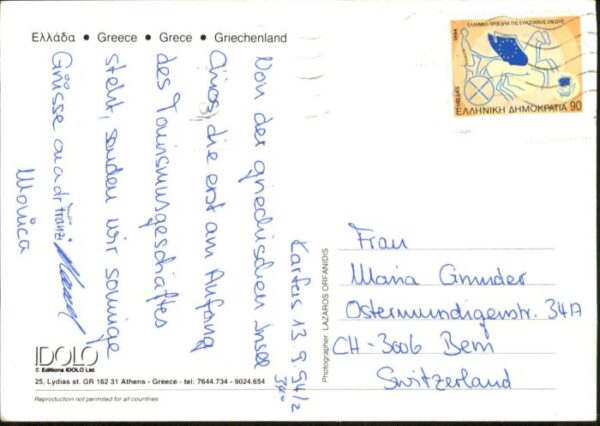 Ελλάδα • Greece • Grece • Griechenland
ΕΛΛΗΝΙΚΗ ΠΡΟΕΔΡΙΑ ΤΗΣ ΕΥΡΩΠΑΪΚΗΣ ΕΝΩΣΗΣ
1994
HELLAS
ΕΛΛΗΝΙΚΗ ΔΗΜΟΚΡΑΤΙΑ 90
Karfas 13.9.94/2
Von der griechischen Insel
Chios, die erst am Anfang
des Tourismusgeschäftes
steht, senden wir sonnige
Grüsse
Monica
Photographer: LAZAROS ORFANIDIS
Frau
Maria Gmünder
Ostermundigenstr. 34A
CH-3006 Bern
Switzerland
IDOLO
© Editions IDOLO Ltd.
25, Lydias st. GR 162 31 Athens - Greece - tel: 7644.734 - 9024.654
Reproduction not permited for all countries